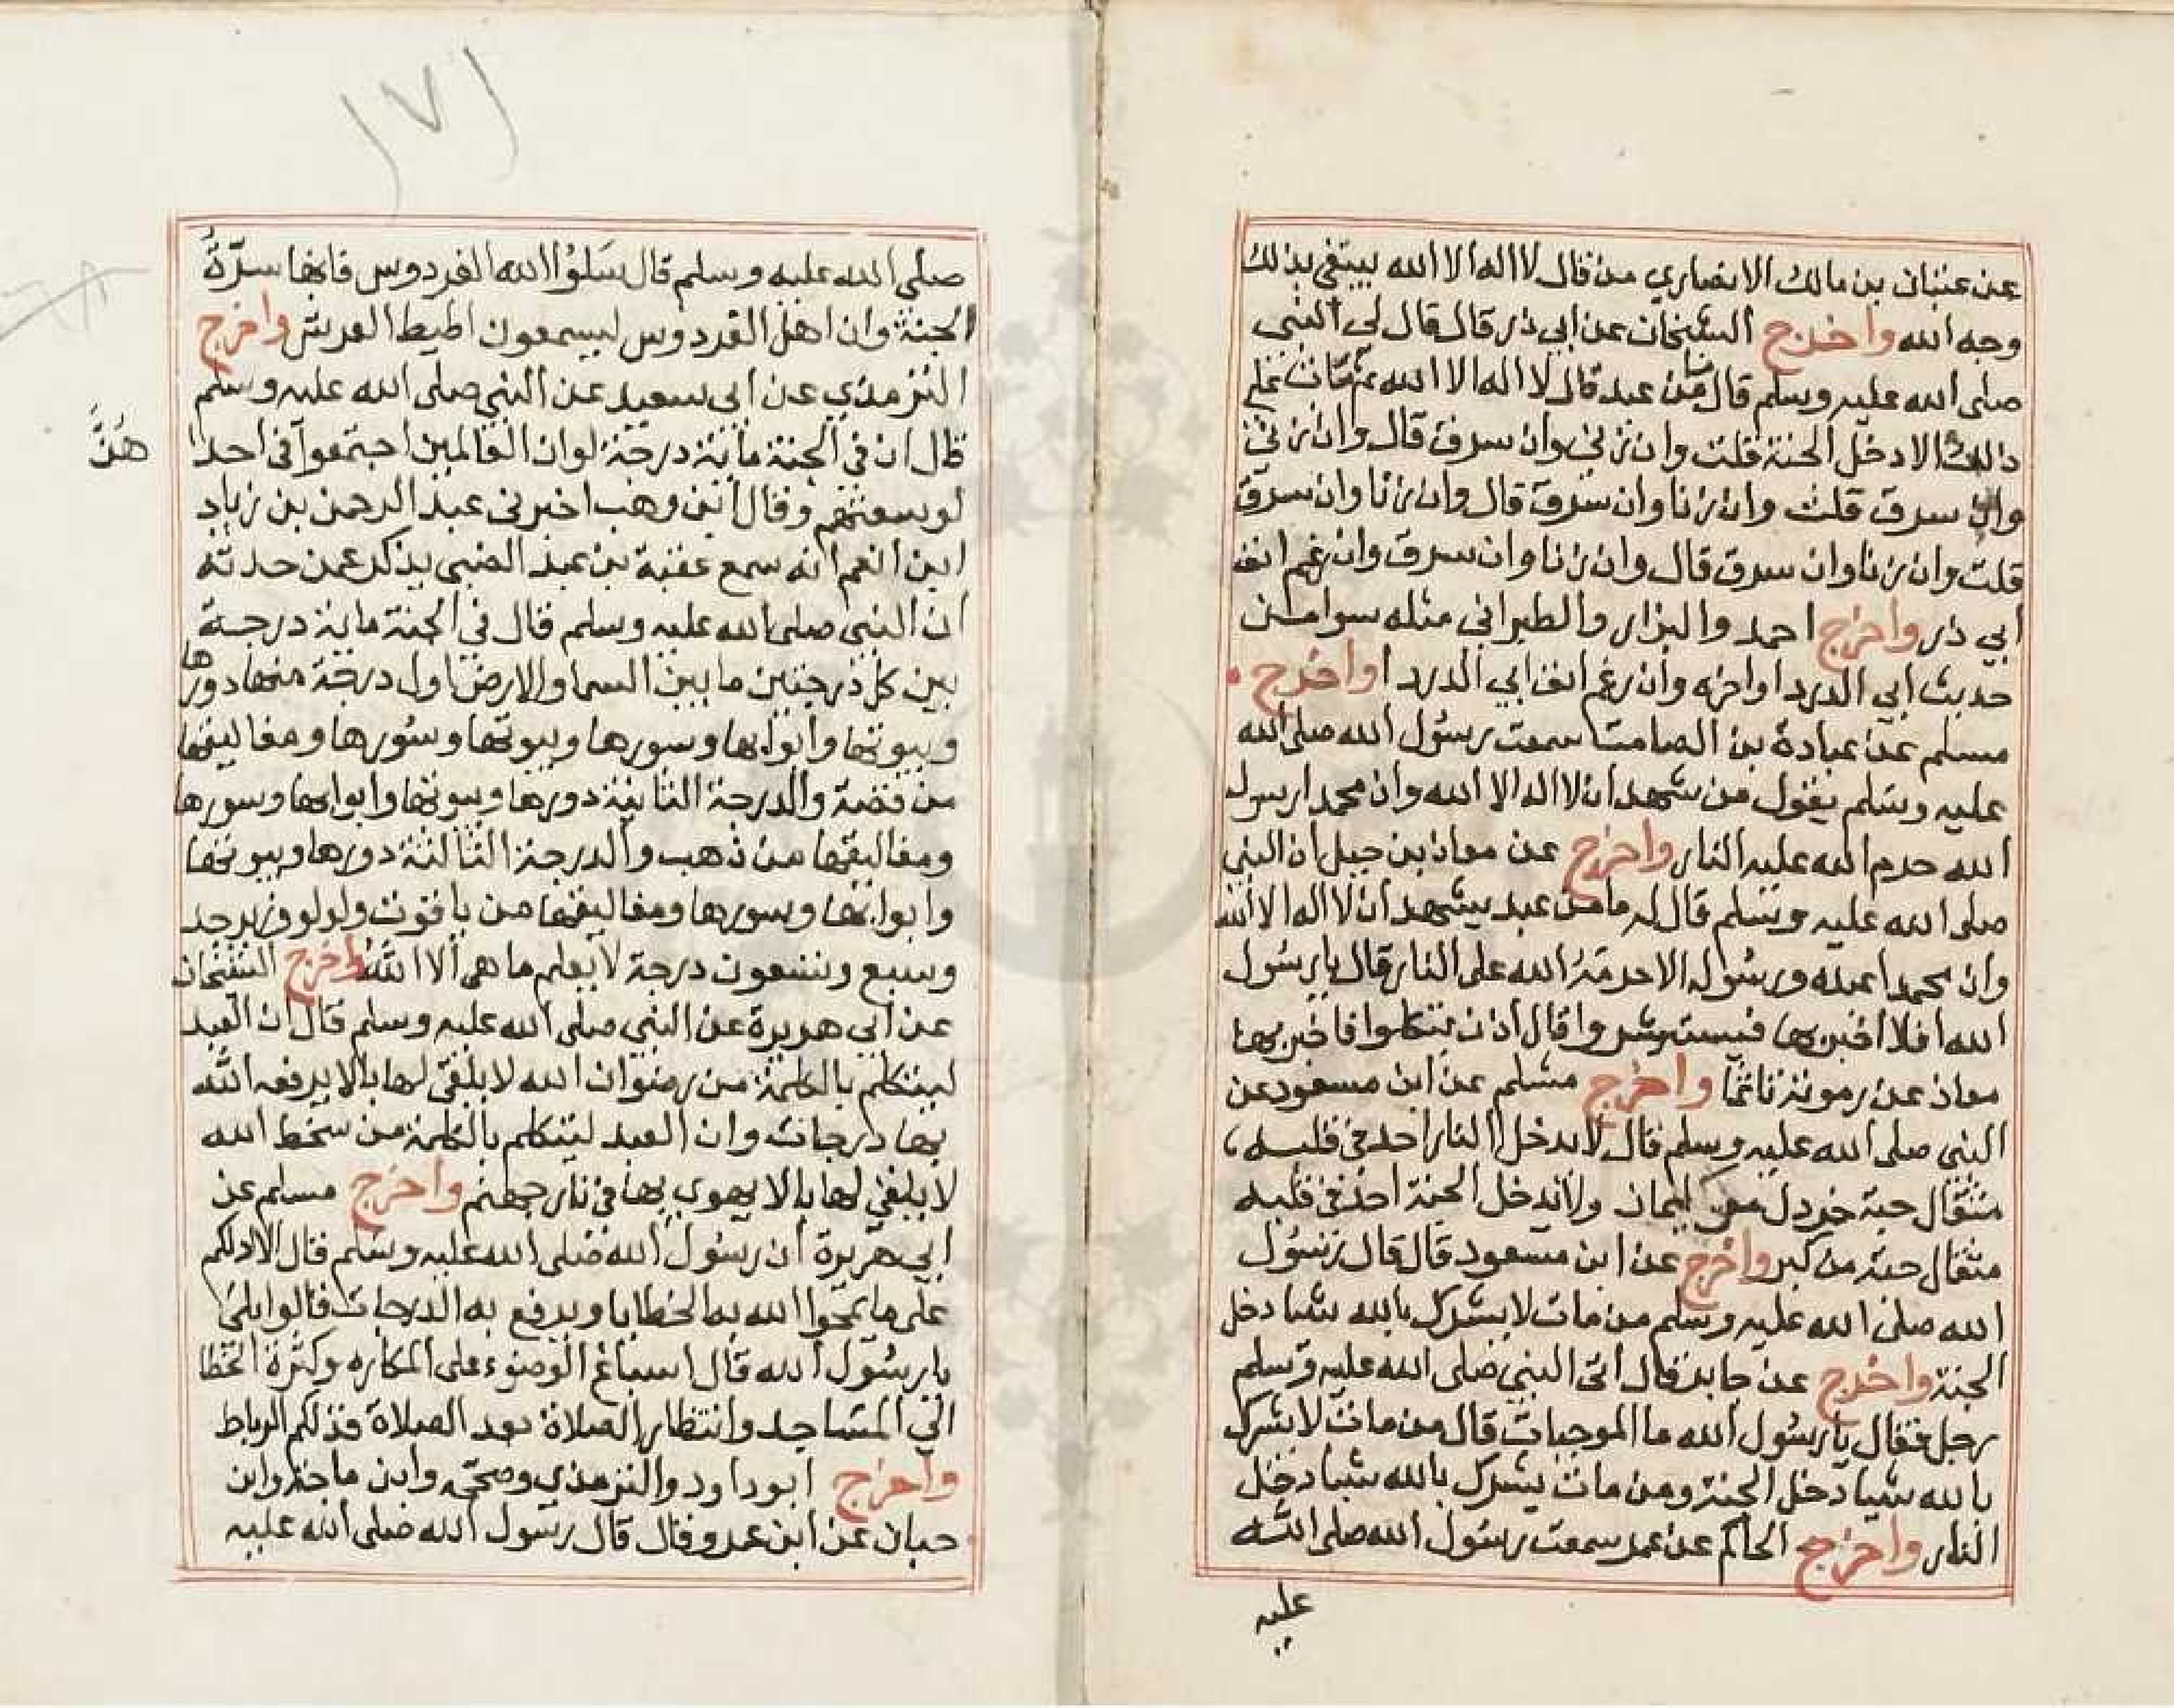 عن عتبان بن مالك الانصاري من قال لا اله الا الله يبتغي بذلك
وجه الله واخرج الشيخان عن ابي ذر قال قال لي النبي
صلى الله عليه وسلم قال ما من عبد قال لا اله الا الله ثم مات على
ذلك الا دخل الجنة قلت وان زنى وان سرق قال وان زنى
وان سرق قلت وان زنا وان سرق قال وان زنا وان سرق
قلت وان زنا وان سرق قال وان زنا وان سرق وان رغم انف
ابي ذر واخرج احمد والبزار والطبراني مثله سوا من
حديث ابي الدردا واخره وان رغم انف ابي الدردا واخرج
مسلم عن عبادة بن الصامت سمعت رسول الله صلى الله
عليه وسلم يقول من شهد ان لا اله الا الله وان محمدا رسول
الله حرم الله عليه النار واخرج عن معاذ بن جبل ان النبي
صلى الله عليه وسلم قال له ما من عبد يشهد ان لا اله الا الله
وان محمدا عبده ورسوله الا حرمه الله على النار قال يا رسول
الله افلا اخبر بها فيستبشروا قال اذن يتكلوا فاخبر بها
معاذ عند موته تاثما واخرج مسلم عن ابن مسعود عن
النبي صلى الله عليه وسلم قال لا يدخل النار احد في قلبه
مثقال حبة خردل من ايمان ولا يدخل الجنة احد في قلبه
مثقال حبة من كبر واخرج عن ابن مسعود قال قال رسول
الله صلى الله عليه وسلم من مات لا يشرك بالله شيا دخل
الجنة واخرج عن جابر قال اتى النبي صلى الله عليه وسلم
رجل فقال يا رسول الله ما الموجبات قال من مات لا يشرك
بالله شيا دخل الجنة ومن مات يشرك بالله شيا دخل
النار واخرج الحاكم عن عمر سمعت رسول الله صلى الله
عليه
١٧١
صلى الله عليه وسلم قال سلوا الله الفردوس فانها سرة
الجنة وان اهل الفردوس ليسمعون اطيط العرش واخرج
الترمذي عن ابي سعيد عن النبي صلى الله عليه وسلم
قال ان في الجنة ماية درجة لوان العالمين اجتمعوا في احدا
هن
لوسعتهم وقال ابن وهب اخبرني عبد الرحمن بن زياد
ابن انعم انه سمع عقبة بن عبد الضبي يذكر عمن حدثه
ان النبي صلى الله عليه وسلم قال في الجنة ماية درجة
بين كل درجتين ما بين السما والارض اول درجة منها دورها
وبيوتها وابوابها وسورها وبيوتها وسورها ومغاليقها
من فضة والدرجة الثانية دورها وبيوتها وابوابها وسورها
ومغاليقها من ذهب والدرجة الثالثة دورها وبيوتها
وابوابها وسورها ومغاليقها من ياقوت ولولو وزبرجد
وسبع وتسعون درجة لا يعلم ما هي الا الله واخرج الشيخان
عن ابي هريرة عن النبي صلى الله عليه وسلم قال ان العبد
ليتكلم بالكلمة من رضوان الله لا يلقي لها بالا يرفعه الله
بها درجات وان العبد ليتكلم بالكلمة من سخط الله
لا يلقي لها بالا يهوي بها في نار جهنم واخرج مسلم عن
ابي هريرة ان رسول الله صلى الله عليه وسلم قال الا ادلكم
على ما يمحوا الله به الخطايا ويرفع به الدرجات قالوا بلى
يا رسول الله قال اسباغ الوضوء على المكاره وكثرة الخطا
الي المساجد وانتظار الصلاة بعد الصلاة فذلكم الرباط
واخرج ابو داود والترمذي وصححه وابن ماجة وابن
حبان عن ابن عمرو قال قال رسول الله صلى الله عليه